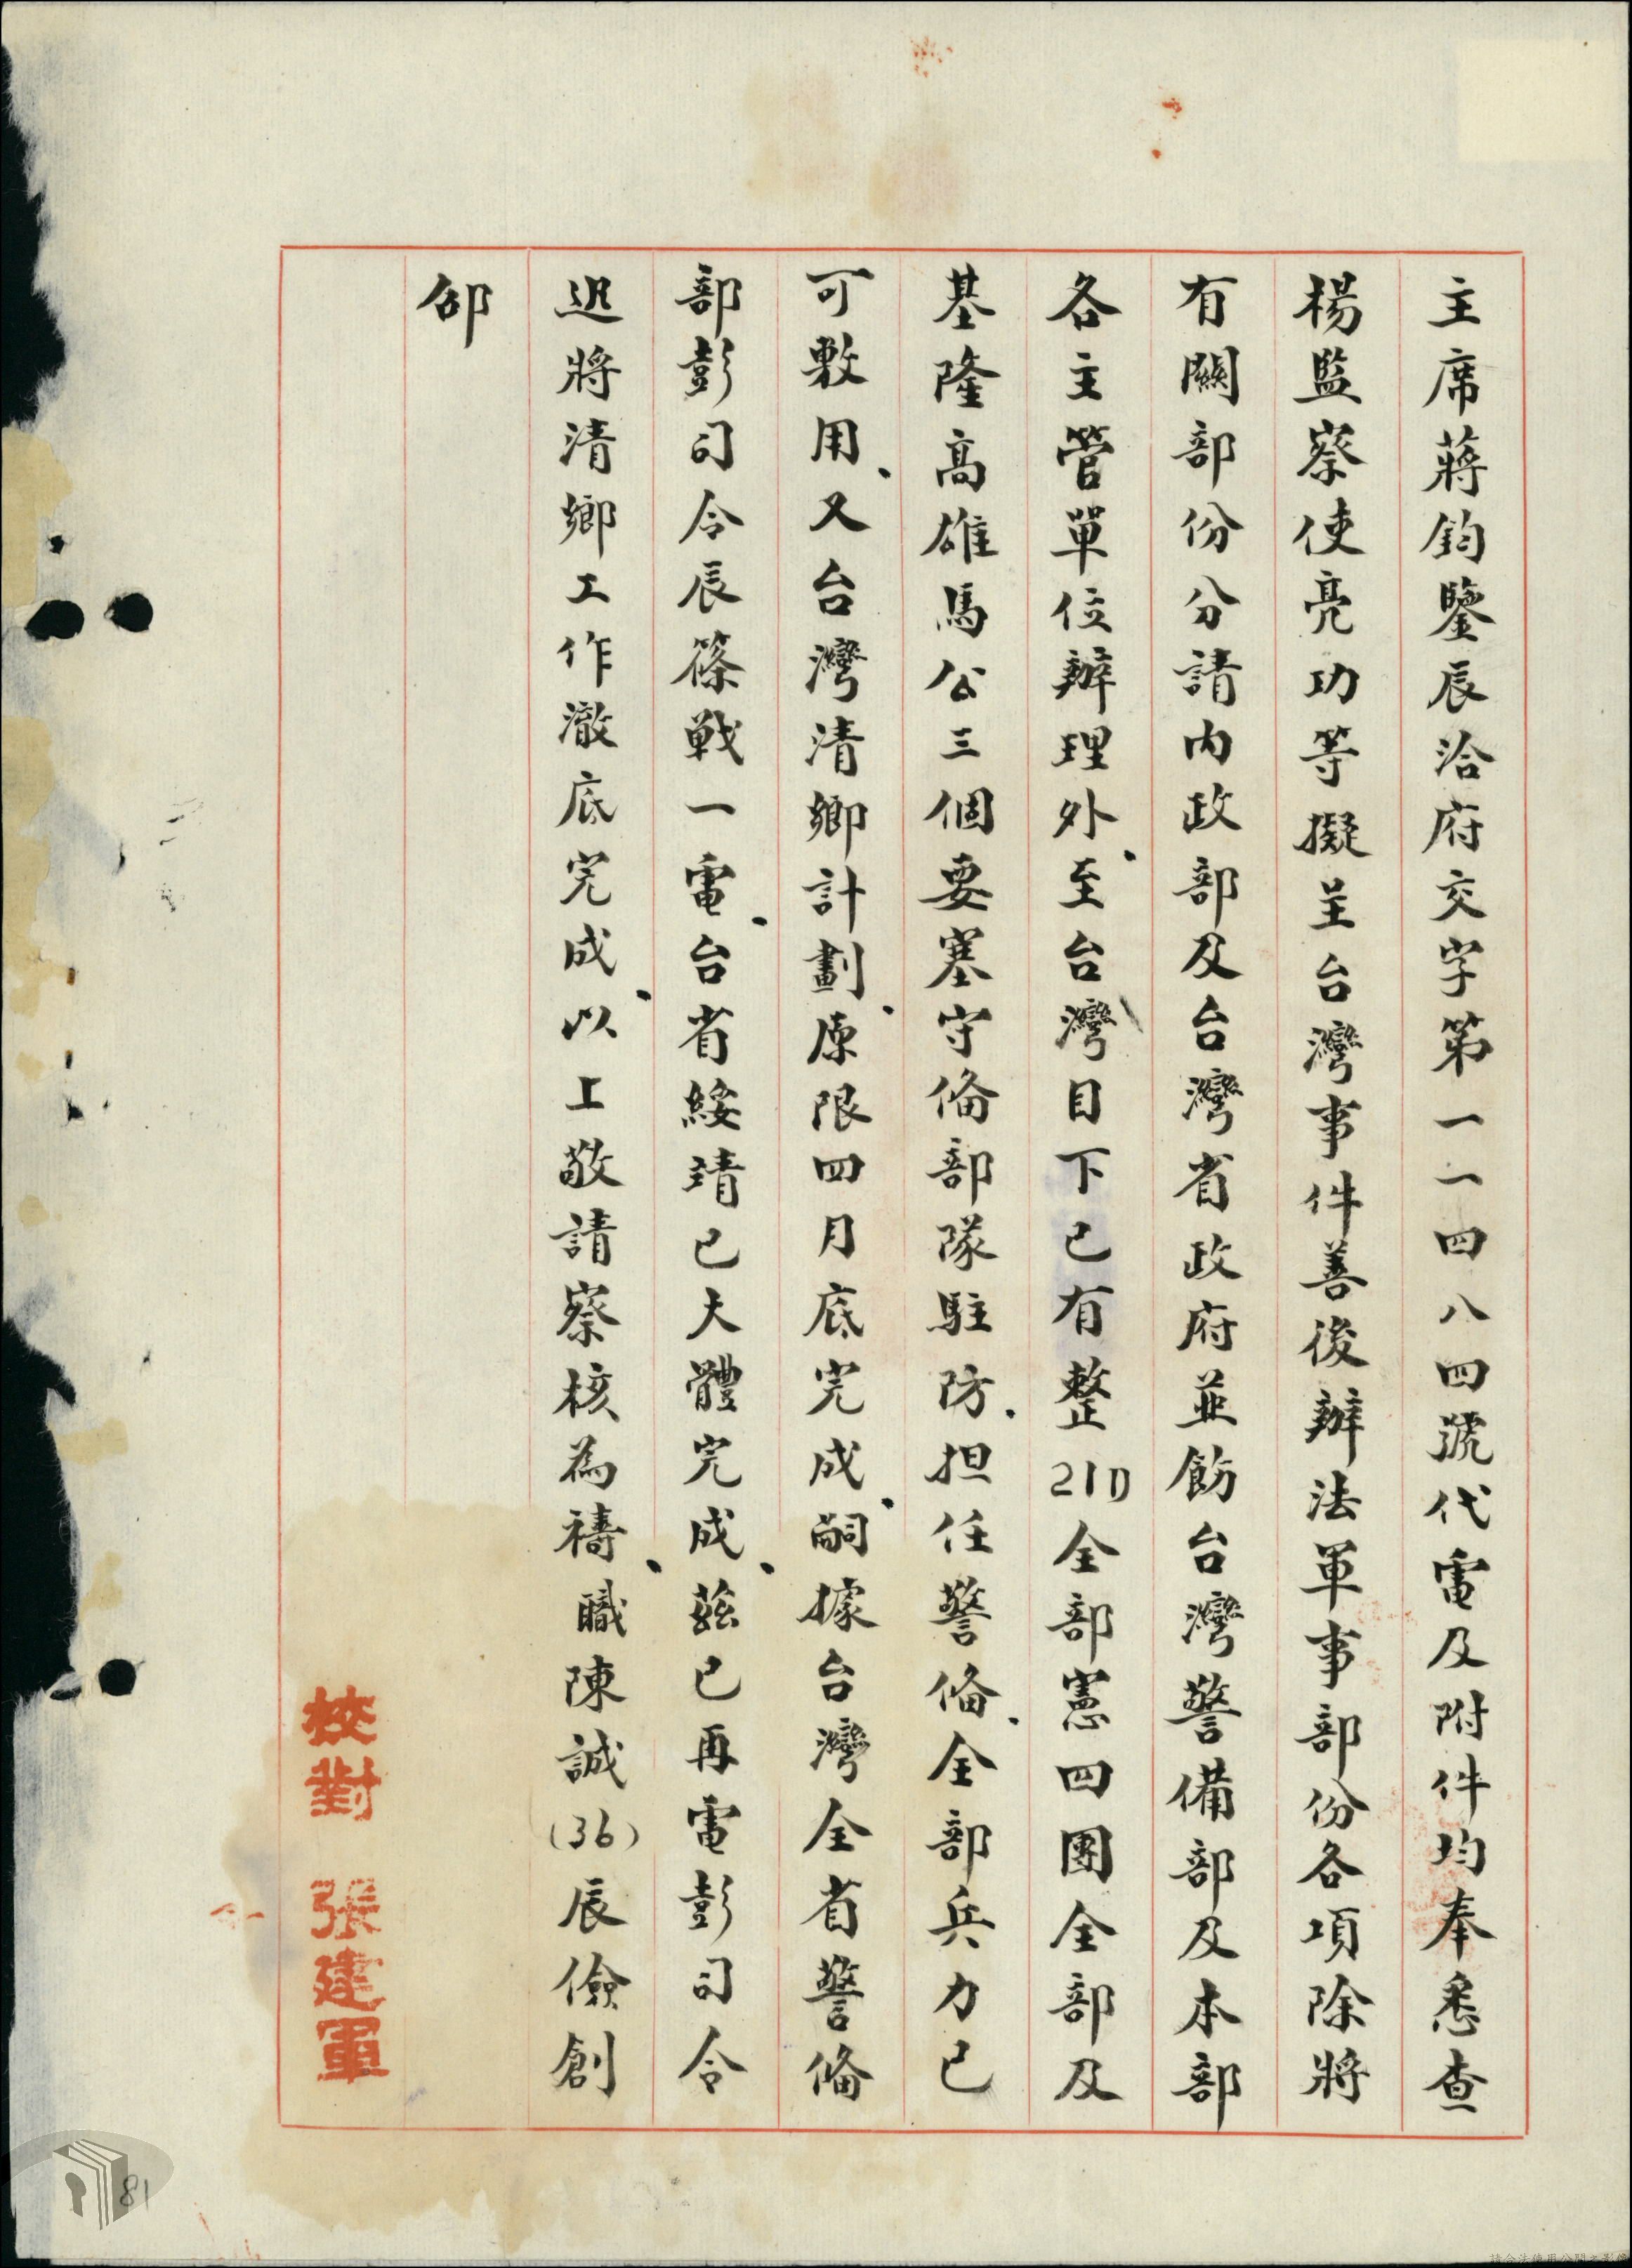 主席蔣鈞鑒辰洽府交字第一一四八四號代電及附件均奉悉查
楊監察使亮功等擬呈台灣事件善後辦法軍事部份各項除將
有關部份分請內政部及台灣省政府並飭台灣警備部及本部
各主管單位辦理外、至台灣目下已有整21D全部憲四團全部及
基隆高雄馬公三個要塞守俻部隊駐防、担任警俻、全部兵力已
可敷用、又台灣清鄉計劃、原限四月底完成、嗣據台灣全省警俻
部彭司令辰篠戰一電、台省綏靖已大體完成、茲已再電彭司令
迅將清鄉工作澈底完成、以上敬請察核為禱、職陳誠(36)辰儉創
郃
校對 張建軍
81